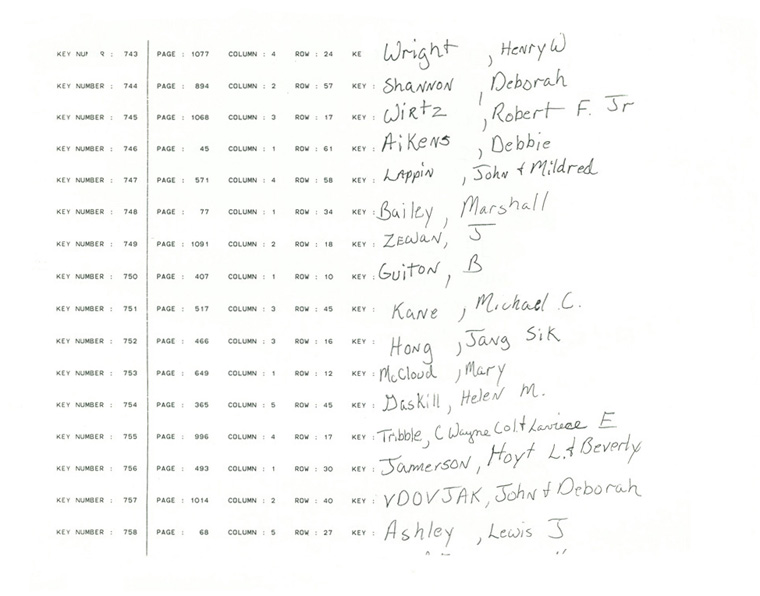 KEY NU R : 743 PAGE : 1077 COLUMN : 4 ROW : 24 KE Wright , Henry W
KEY NUMBER : 744 PAGE : 894 COLUMN : 2 ROW : 57 KEY : SHANNON , Deborah
KEY NUMBER : 745 PAGE : 1068 COLUMN : 3 ROW : 17 KEY : WiRtZ , Robert F. Jr
KEY NUMBER : 746 PAGE : 45 COLUMN : 1 ROW : 61 KEY : AiKENS , Debbie
KEY NUMBER : 747 PAGE : 571 COLUMN : 4 ROW : 58 KEY : LAPPiN , John & Mildred
KEY NUMBER : 748 PAGE : 77 COLUMN : 1 ROW : 34 KEY : Bailey, Marshall
KEY NUMBER : 749 PAGE : 1091 COLUMN : 2 ROW : 18 KEY : ZEWAN, J
KEY NUMBER : 750 PAGE : 407 COLUMN : 1 ROW : 10 KEY : GUITON, B
KEY NUMBER : 751 PAGE : 517 COLUMN : 3 ROW : 45 KEY : KANE , Michael C.
KEY NUMBER : 752 PAGE : 466 COLUMN : 3 ROW : 16 KEY : Hong , Jang Sik
KEY NUMBER : 753 PAGE : 649 COLUMN : 1 ROW : 12 KEY : McCloud , Mary
KEY NUMBER : 754 PAGE : 365 COLUMN : 5 ROW : 45 KEY : Gaskill, Helen M.
KEY NUMBER : 755 PAGE : 996 COLUMN : 4 ROW : 17 KEY : Tribble, C Wayne Col. & E
KEY NUMBER : 756 PAGE : 493 COLUMN : 1 ROW : 30 KEY : Jamerson, Hoyt L. & Beverly
KEY NUMBER : 757 PAGE : 1014 COLUMN : 2 ROW : 40 KEY : VDOVJAK, John & Deborah
KEY NUMBER : 758 PAGE : 68 COLUMN : 5 ROW : 27 KEY : Ashley , Lewis J